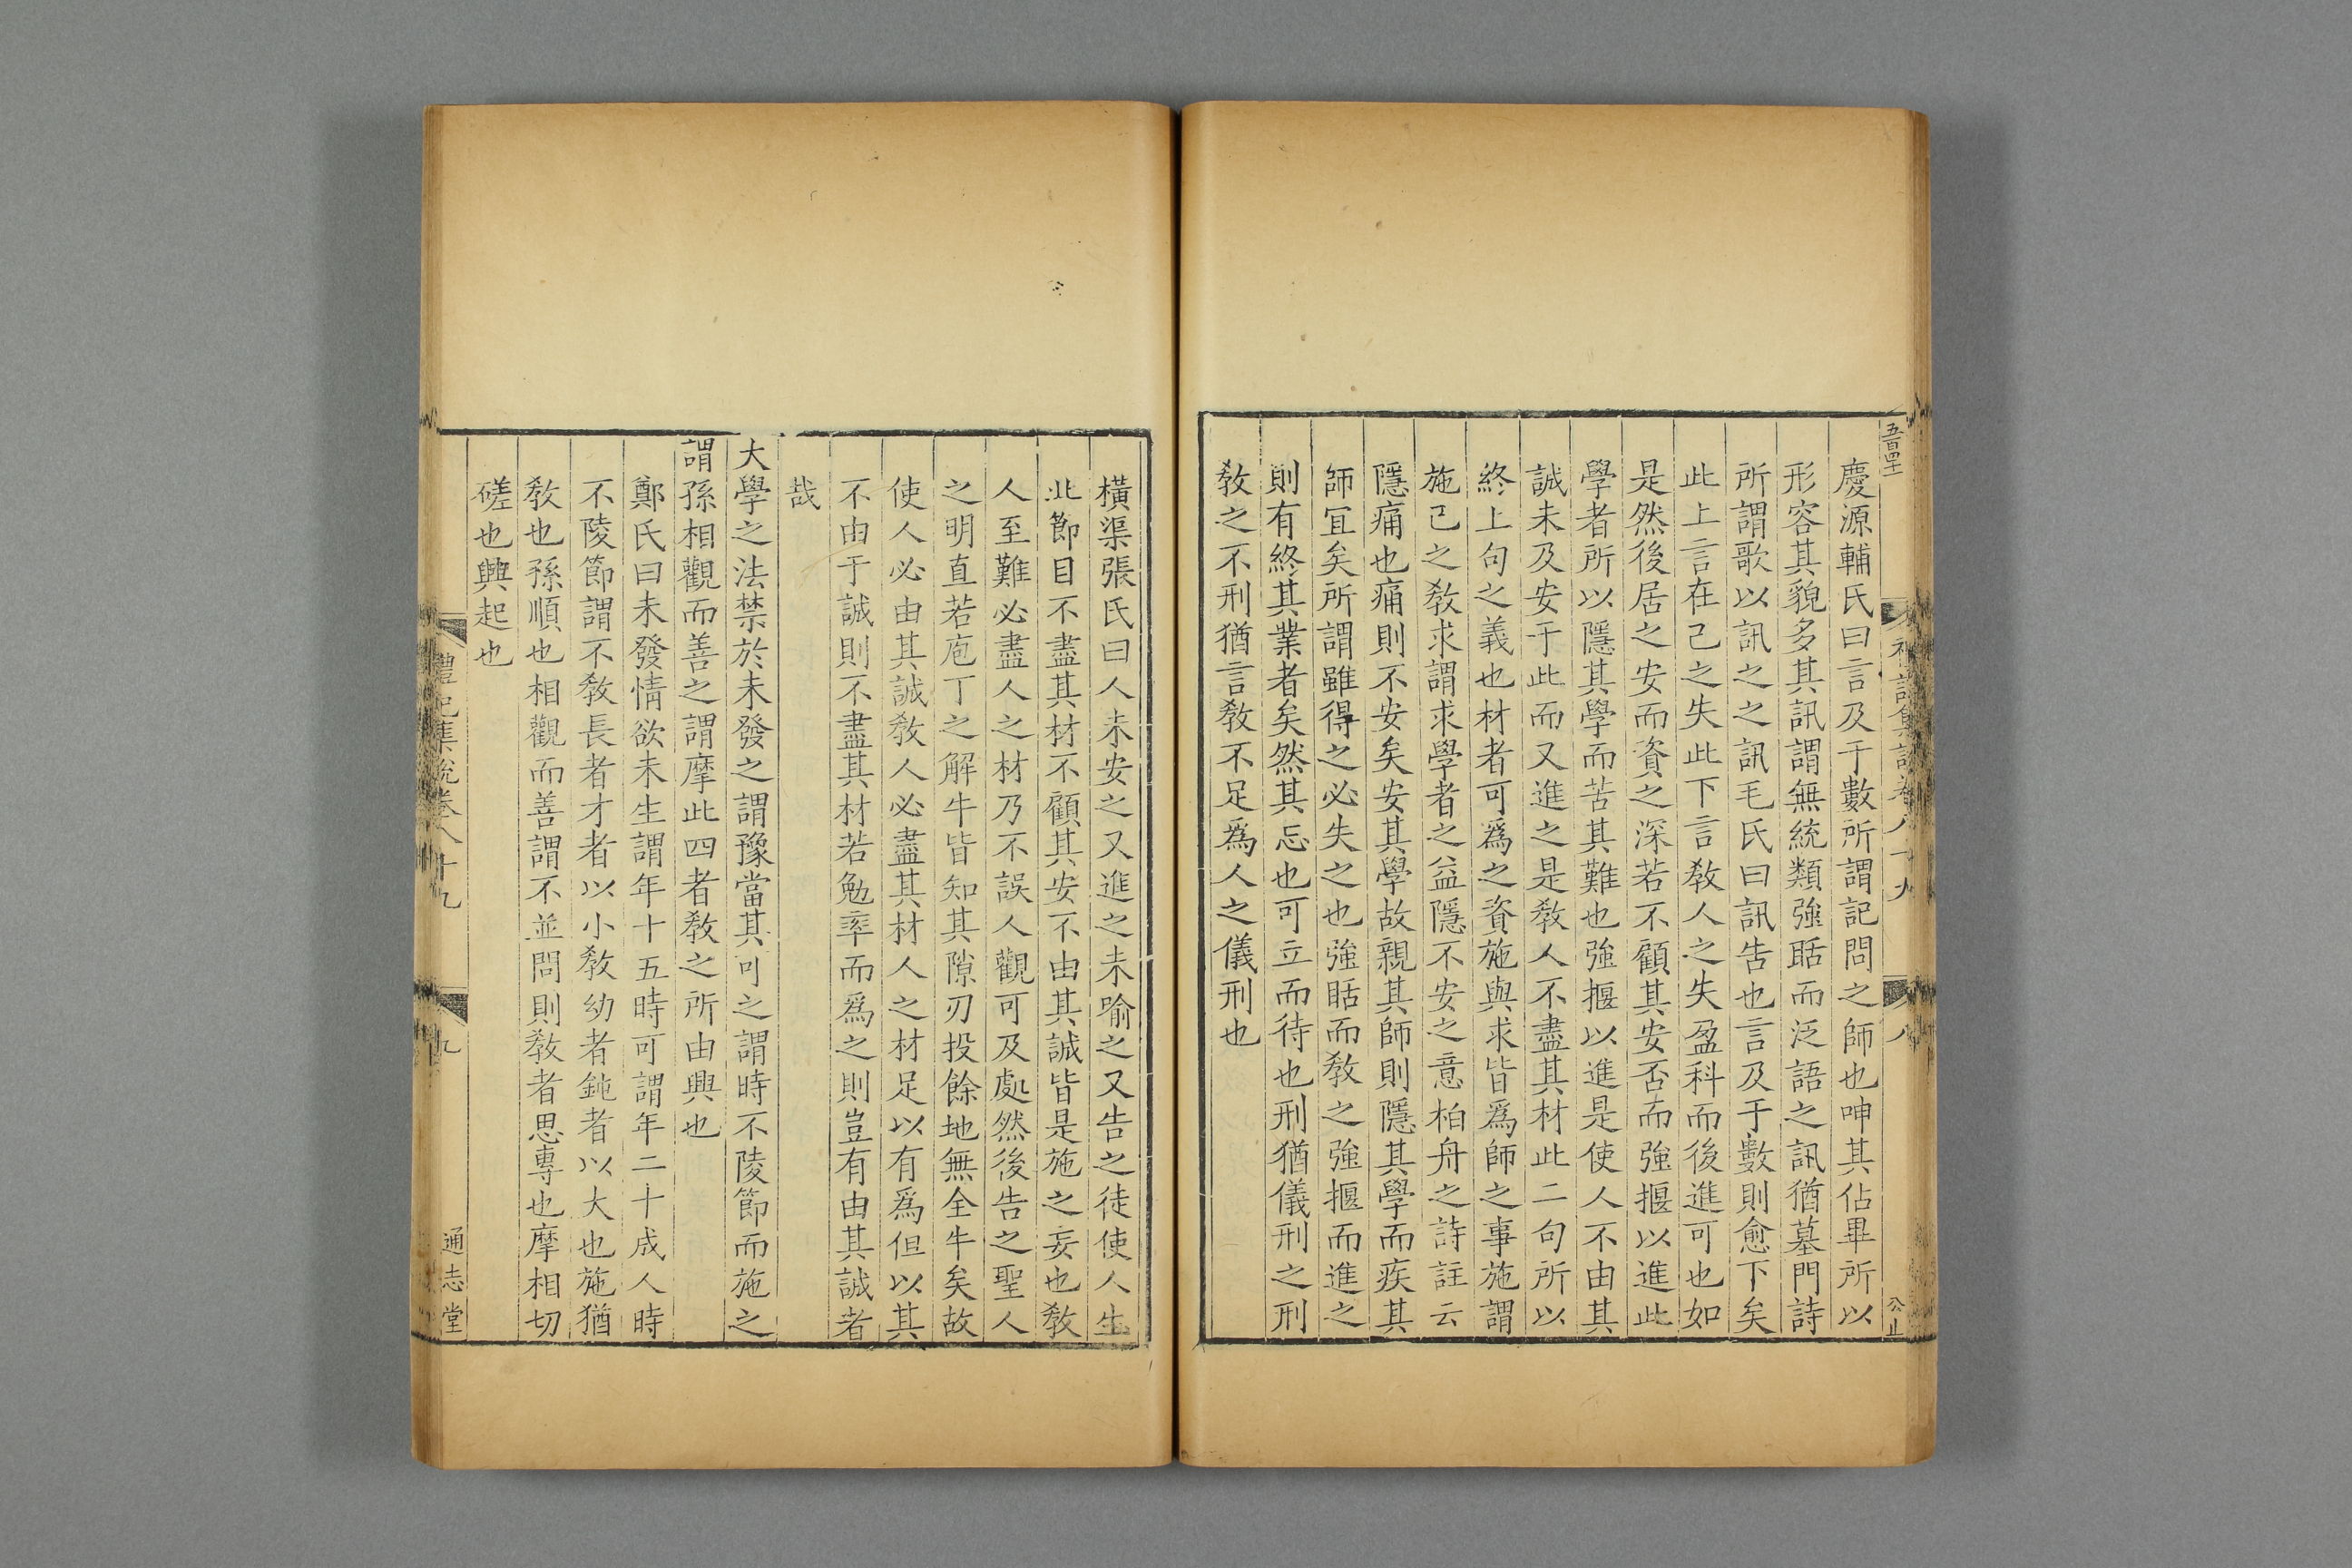 慶源輔氏曰言及于數所謂記問之師也呻其佔畢所以
形容其貌多其訊謂無統類強聒而泛語之訊猶墓門詩
所謂歌以訊之之訊毛氏曰訊告也言及于數則愈下矣
此上言在己之失此下言敎人之失盈科而後進可也如
是然後居之安而資之深若不顧其安否而強揠以進此
學者所以隱其學而苦其難也強揠以進是使人不由其
誠未及安于此而又進之是敎人不盡其材此二句所以
終上句之義也材者可爲之資施與求皆爲師之事施謂
施己之敎求謂求學者之益隱不安之意柏舟之詩註云
隱痛也痛則不安矣安其學故親其師則隱其學而疾其
師冝矣所謂雖得之必失之也強聒而敎之強揠而進之
則有終其業者矣然其忘也可立而待也刑猶儀刑之刑
敎之不刑猶言敎不足爲人之儀刑也
橫渠張氏曰人未安之又進之未喻之又告之徒使人生
此節目不盡其材不顧其安不由其誠皆是施之妄也敎
人至難必盡人之材乃不誤人觀可及處然後告之聖人
之明直若庖丁之解牛皆知其隙刃投餘地無全牛矣故
使人必由其誠敎人必盡其材人之材足以有爲但以其
不由于誠則不盡其材若勉率而爲之則豈有由其誠者
哉
大學之法禁於未發之謂豫當其可之謂時不陵節而施之
謂孫相觀而善之謂摩此四者敎之所由興也
鄭氏曰未發情欲未生謂年十五時可謂年二十成人時
不陵節謂不敎長者才者以小敎幼者鈍者以大也施猶
敎也孫順也相觀而善謂不並問則敎者思專也摩相切
磋也興起也
禮記集說卷八十九
九
通志堂